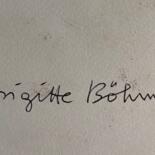 rigitte Böhm